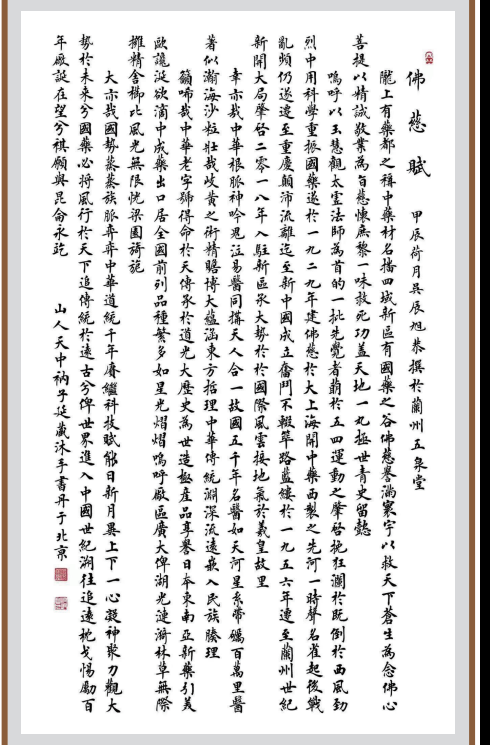 佛慈賦　甲辰荷月吳辰旭恭撰於蘭州五泉堂
隴上有藥都之稱中藥材名播四域新區有國藥之谷佛慈譽滿寰宇以救天下蒼生為念佛心
菩提以精誠敬業為旨慈懷庶黎一味救死功蓋天地一丸拯世青史留懿
嗚呼以玉慧觀太虛法師為首的一批先覺者萌於五四運動之肇啓挽狂瀾於既倒於西風勁
烈中用科學重振國藥遂於一九二九年建佛慈於大上海開中藥西製之先河一時聲名雀起後戰
亂頻仍遂遷至重慶顛沛流離迄至新中國成立奮鬥不輟篳路藍縷於一九五六年遷至蘭州世紀
新開大局肇啓二零一八年入駐新區承大勢於於國際風雲接地氣於羲皇故里
幸亦哉中華根脈神吟鬼泣易醫同構天人合一故國五千年名醫如天河星系帶礪百萬里醫
著似瀚海沙粒壯哉岐黃之術精贍博大蘊涵東方哲理中華傳統淵深流遠嵌入民族腠理
籲唏哉中華老字號得命於天傳承於道光大歷史為世造極產品享譽日本東南亞新藥引美
歐讒涎欲滴中成藥出口居全國前列品種繁多如星光熠熠嗚呼廠區廣大俾湖光漣漪林草無際
攤精舍櫛比風光無限恍梁園旖旎
大亦哉國勢蒸蒸族脈弈弈中華道統千年賡繼科技賦能日新月異上下一心凝神聚力觀大
勢於未來兮國藥必將風行於天下追傳統於遠古兮俾世界進入中國世紀溯往追遠枕戈惕勵百
年廠誕在望兮祺願與昆侖永跎
山人天中衲子延藏沐手書丹于北京